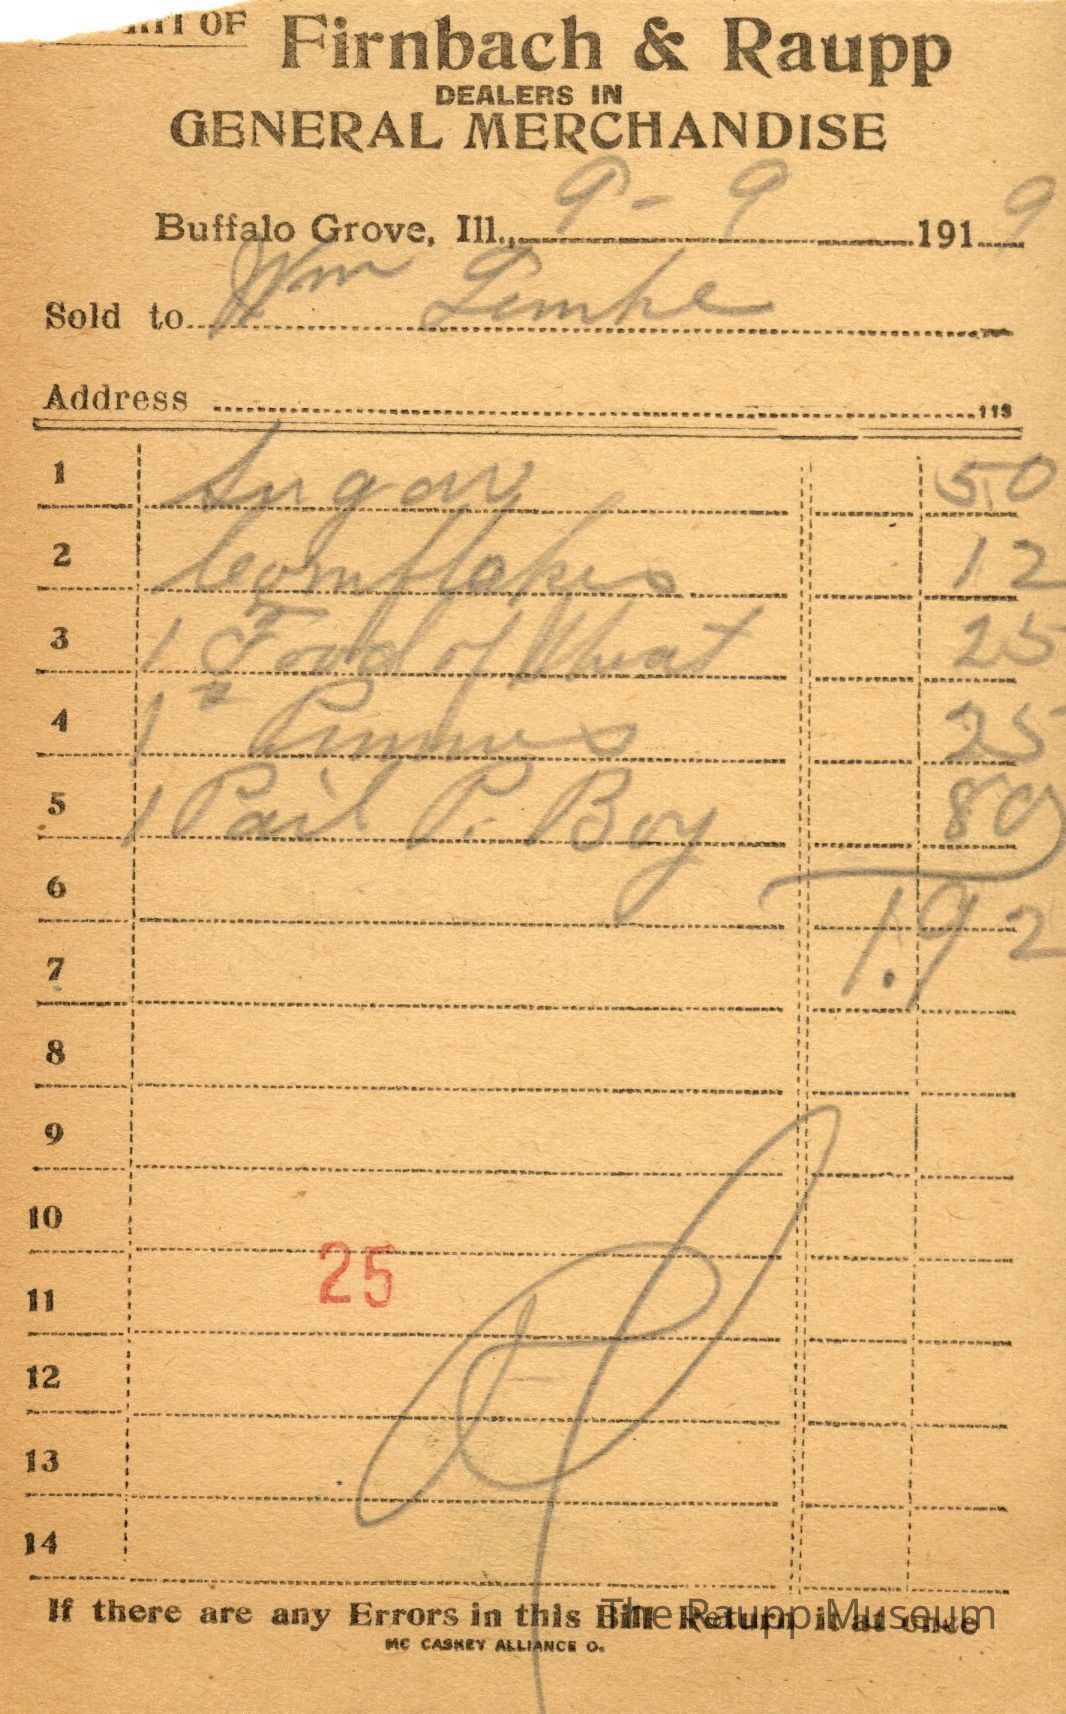 OF Firnbach & Raupp
DEALERS IN
GENERAL MERCHANDISE
Buffalo Grove, Ill., 9-9 1919
Sold to Wm Lemke
Address 113
1 Sugar 50
2 Cornflakes 12
3 1 Food of Wheat 25
4 1 # Prunes 25
5 1 Pail P. Boy 80
6 1.92
7
8
9
10
25
11
12
13
14
If there are any Errors in this Bill Return it at once
The Raupp Museum
MC CASKEY ALLIANCE O.